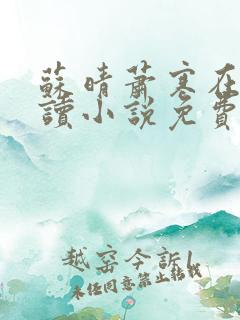 蘇晴蕭寒在
讀小說免費
越窑今訴I
未经同意禁止转载